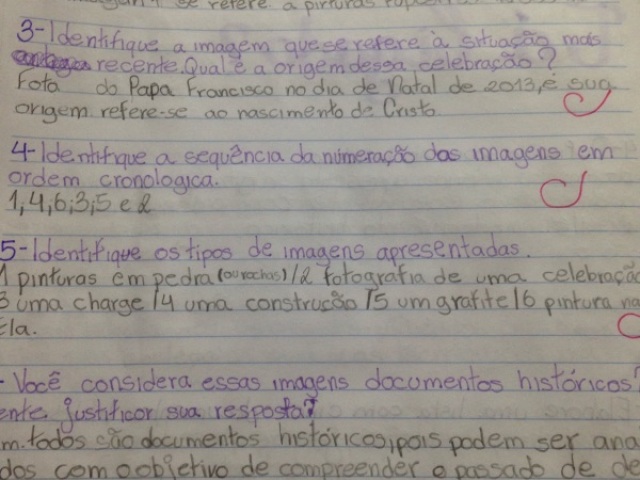 se refere a pinturas
3-Identifique a imagem que se refere à situação mais
recente. Qual é a origem dessa celebração?
Foto do Papa Francisco no dia de Natal de 2013, e sua
origem refere-se ao nascimento de Cristo.
4-Identifique a sequência da numeração das imagens em
ordem cronologica.
1,4,6,3,5 e 2
5-Identifique os tipos de imagens apresentadas.
1 pinturas em pedra (ou rochas) / 2 fotografia de uma celebração
3 uma charge / 4 uma construção / 5 um grafite / 6 pintura na
tela.
- Você considera essas imagens documentos históricos?
ente justificar sua resposta?
m. todos são documentos históricos, pois podem ser ana
dos com o objetivo de compreender o passado de de